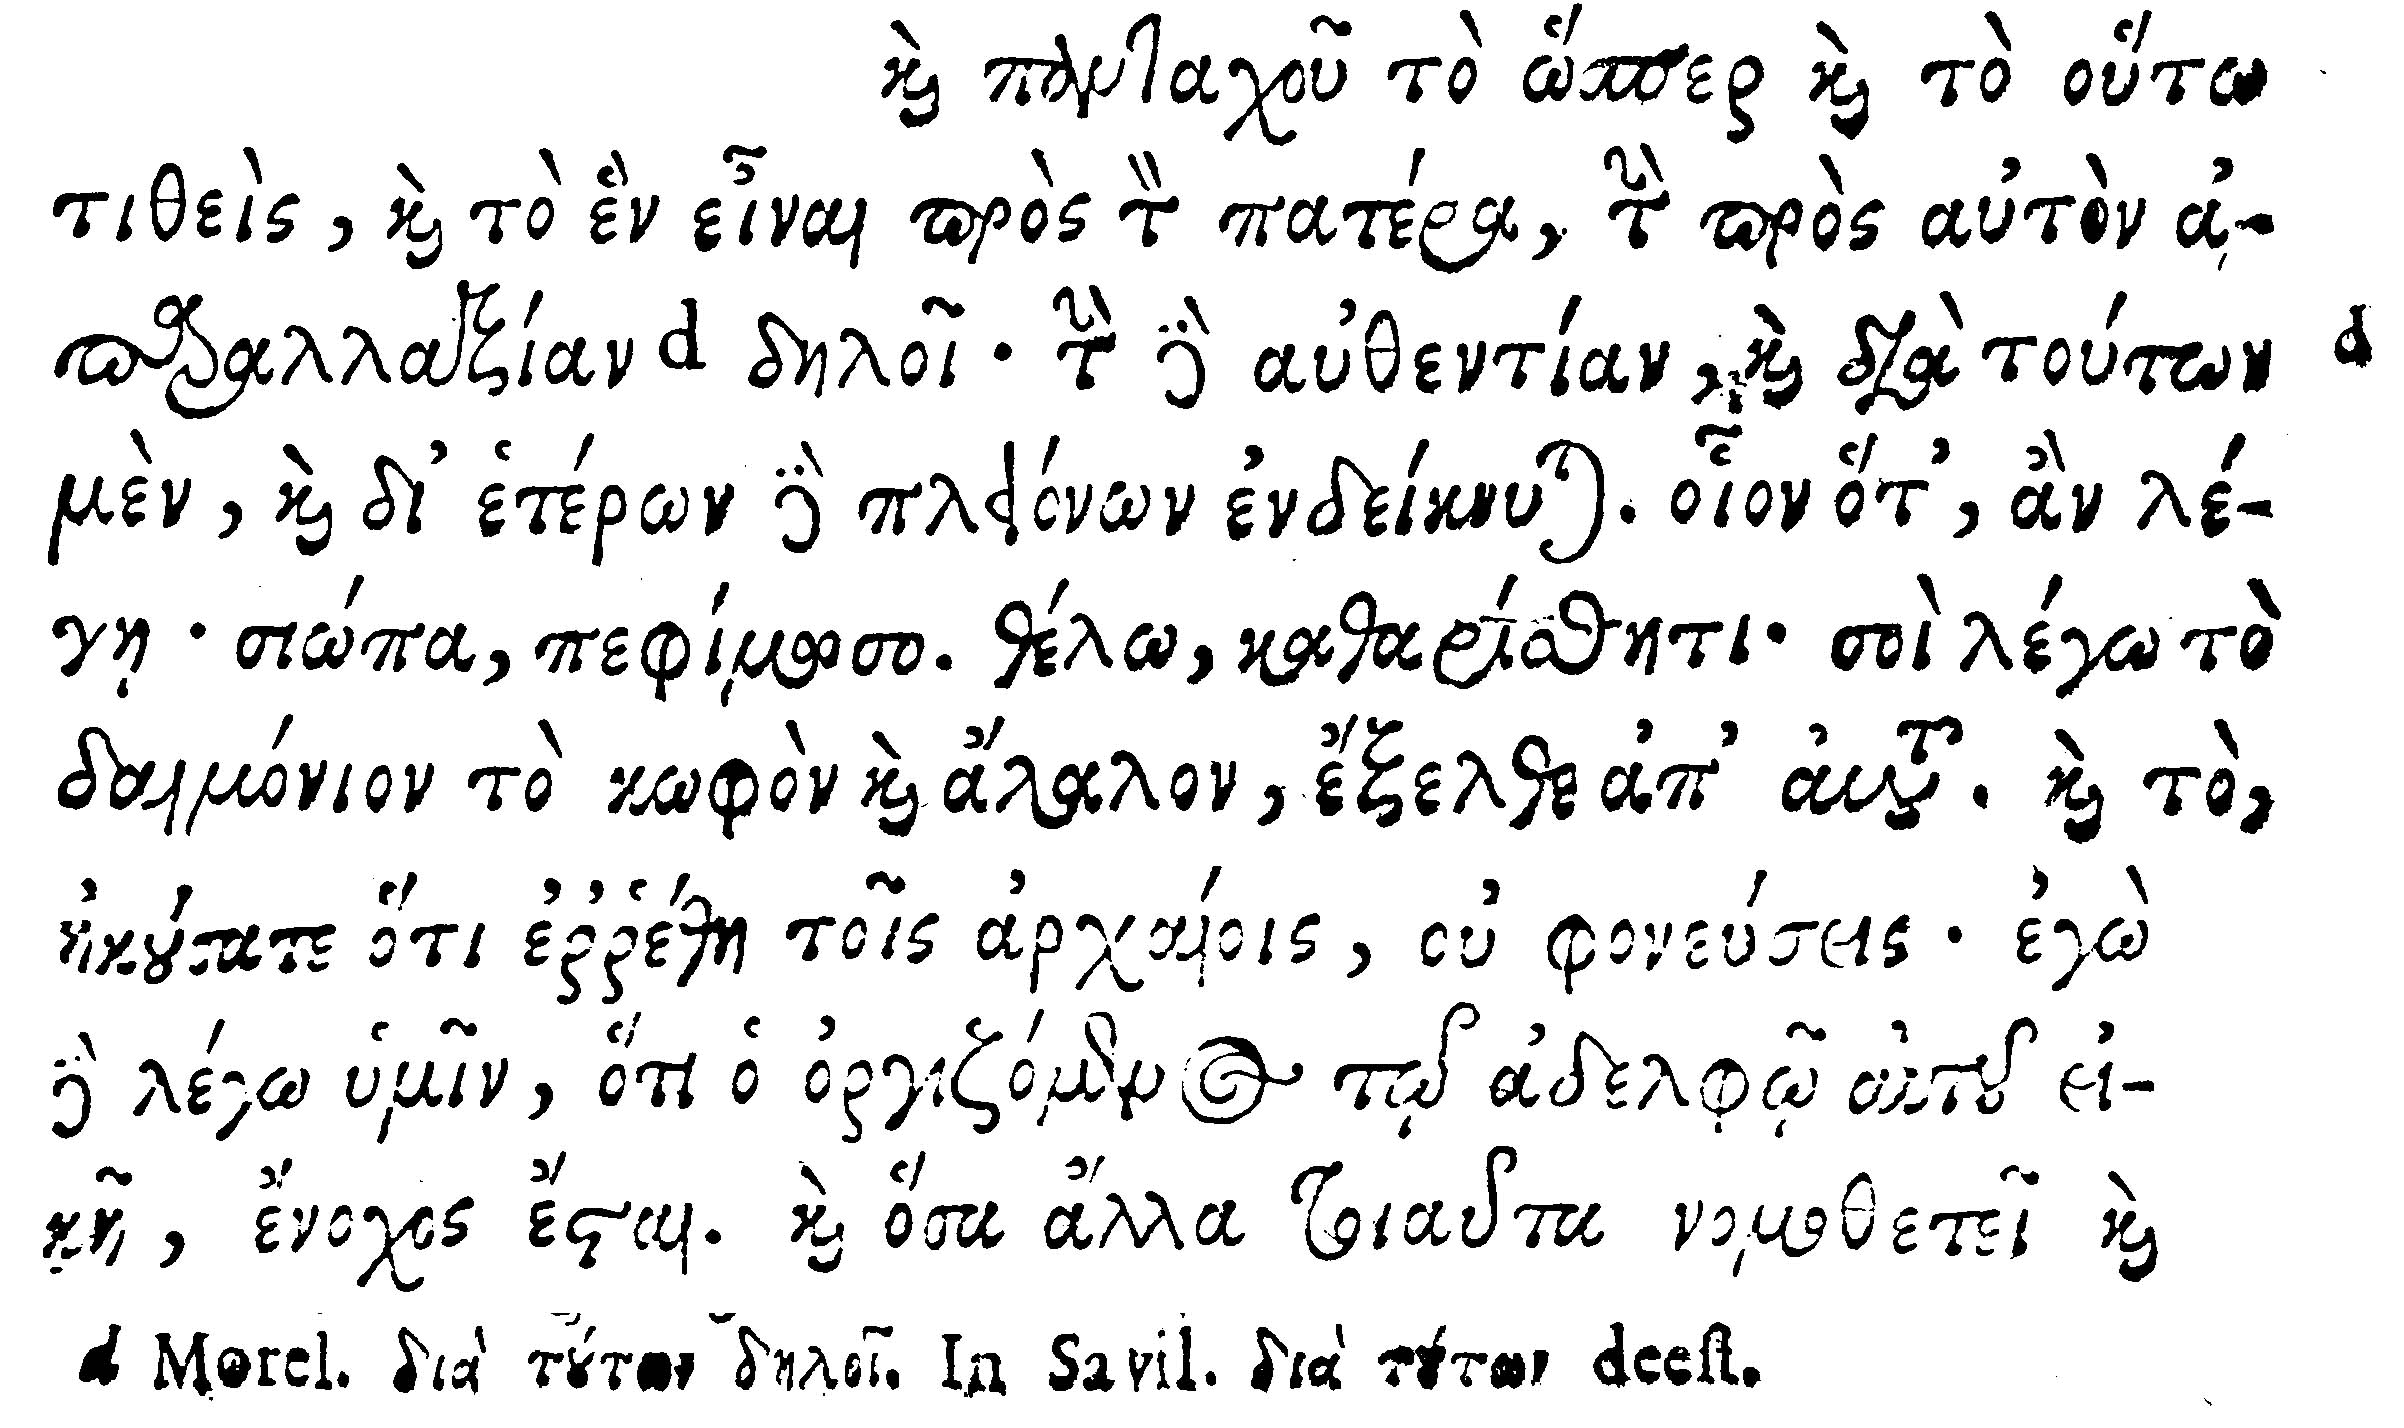 καὶ πανταχοῦ τὸ ὥσπερ καὶ τὸ οὕτω
τιθεὶς, καὶ τὸ ἓν εἶναι πρὸς τὸν πατέρα, τὴν πρὸς αὐτὸν ἀ-
παραλλαξίαν d δηλοῖ· τὴν δὲ αὐθεντίαν, καὶ διὰ τούτων d
μὲν, καὶ δι᾽ ἑτέρων δὲ πλειόνων ἐνδείκνυται. οἷον ὅτ᾽, ἂν λέ-
γῃ· σιώπα, πεφίμωσο. θέλω, καθαρίσθητι· σοὶ λέγω τὸ
δαιμόνιον τὸ κωφὸν καὶ ἄλαλον, ἔξελθε ἀπ᾽ αὐτοῦ. καὶ τὸ,
ἠκούσατε ὅτι ἐῤῥέθη τοῖς ἀρχαίοις, οὐ φονεύσεις· ἐγὼ
δὲ λέγω ὑμῖν, ὅτι ὁ ὀργιζόμενος τῷ ἀδελφῷ αὐτοῦ εἰ-
κῆ, ἔνοχος ἔσται. καὶ ὅσα ἄλλα τοιαῦτα νομοθετεῖ καὶ
d Morel. διὰ τούτων δηλοῖ. In Savil. διὰ τούτων deest.